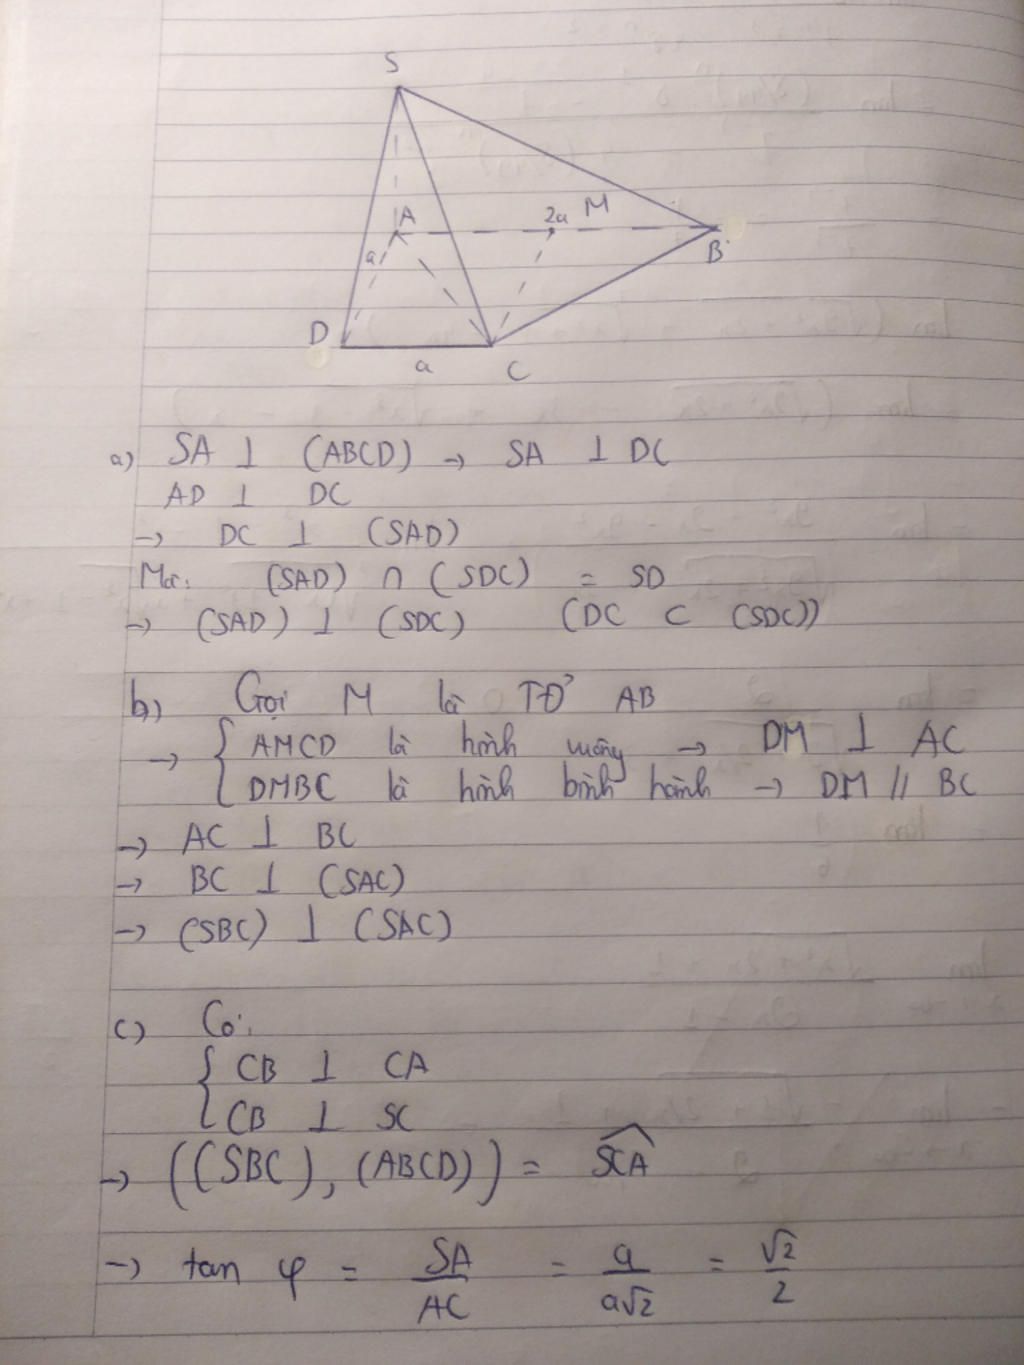 S
A
2a M
a
B
D
a
C
a) SA ⊥ (ABCD) → SA ⊥ DC
AD ⊥ DC
→ DC ⊥ (SAD)
Mà: (SAD) ∩ (SDC) = SD
→ (SAD) ⊥ (SDC) (DC ⊂ (SDC))
b) Gọi M là TĐ AB
→ { AMCD là hình vuông → DM ⊥ AC
DMBC là hình bình hành → DM // BC
→ AC ⊥ BC
→ BC ⊥ (SAC)
→ (SBC) ⊥ (SAC)
c) Có:
{ CB ⊥ CA
CB ⊥ SC
→ ((SBC), (ABCD)) = \widehat{SCA}
→ tan φ = SA/AC = a/a√2 = √2/2